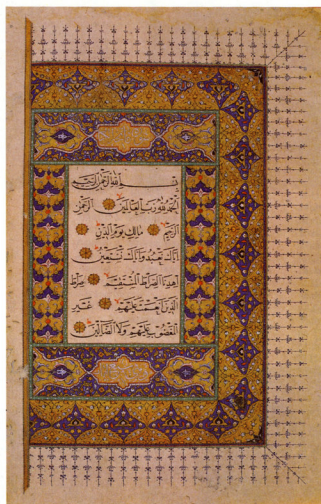 بسم الله الرحمن الرحيم
الحمد لله رب العالمين الرحمن
الرحيم مالك يوم الدين
إياك نعبد وإياك نستعين
اهدنا الصراط المستقيم صراط
الذين أنعمت عليهم غير
المغضوب عليهم ولا الضالين